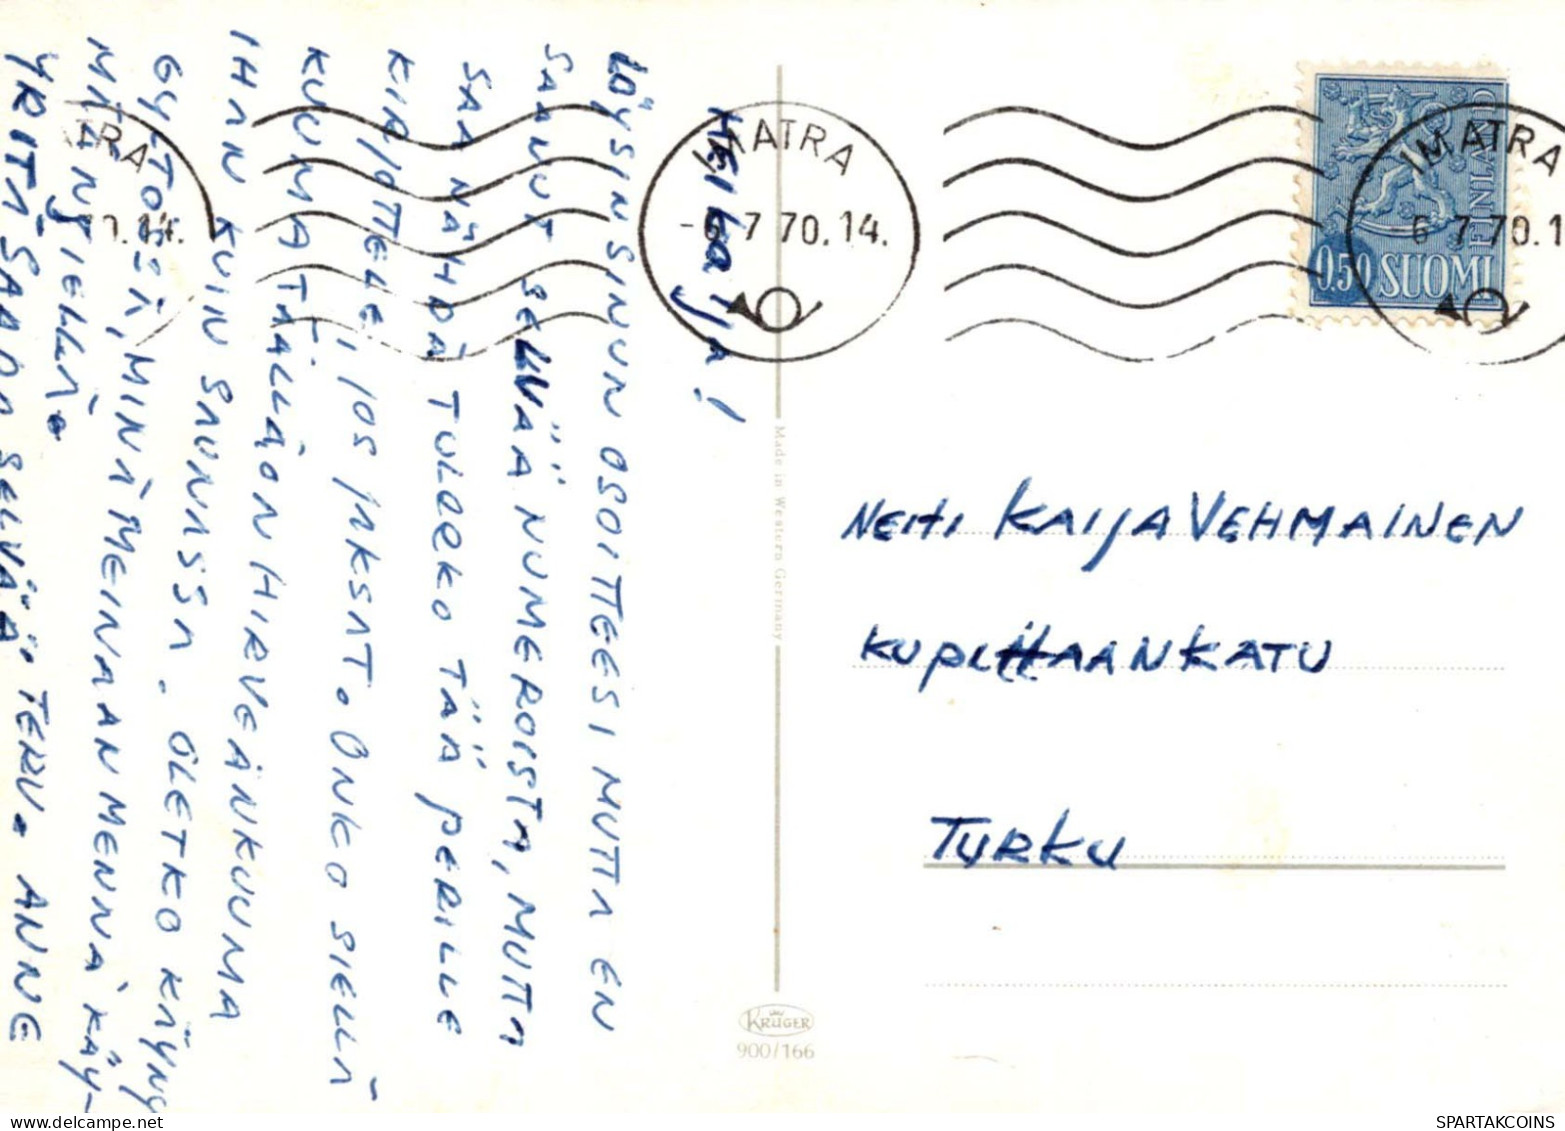 HEI KAIJA!
LÖYSIN SINUN OSOITTEESI MUTTA EN
SAANUT SELVÄÄ NUMEROISTA, MUTTA
SAA NÄHDÄ TULEEKO TÄÄ PERILLE
KIRJOTTELE, JOS JAKSAT. ONKO SIELLÄ
KUUMA TÄÄLLÄ ON HIRVEÄN KUUMA
IHAN KUIN SAUNASSA. OLETKO KÄYNY
GYLTÖSSÄ, MINÄ MEINAAN MENNÄ KÄY-
MÄÄN SIELLÄ.
YRITÄ SAADA SELVÄÄ. TERV. ANNE
IMATRA
-6.7.70.14.
IMATRA
-6.7.70.1
0.50 SUOMI
FINLAND
TRA
0.14.
Made in Western Germany
NEITI KAIJA VEHMAINEN
KUPITTAANKATU
TURKU
KRÜGER
900/166
SPARTAKCOINS